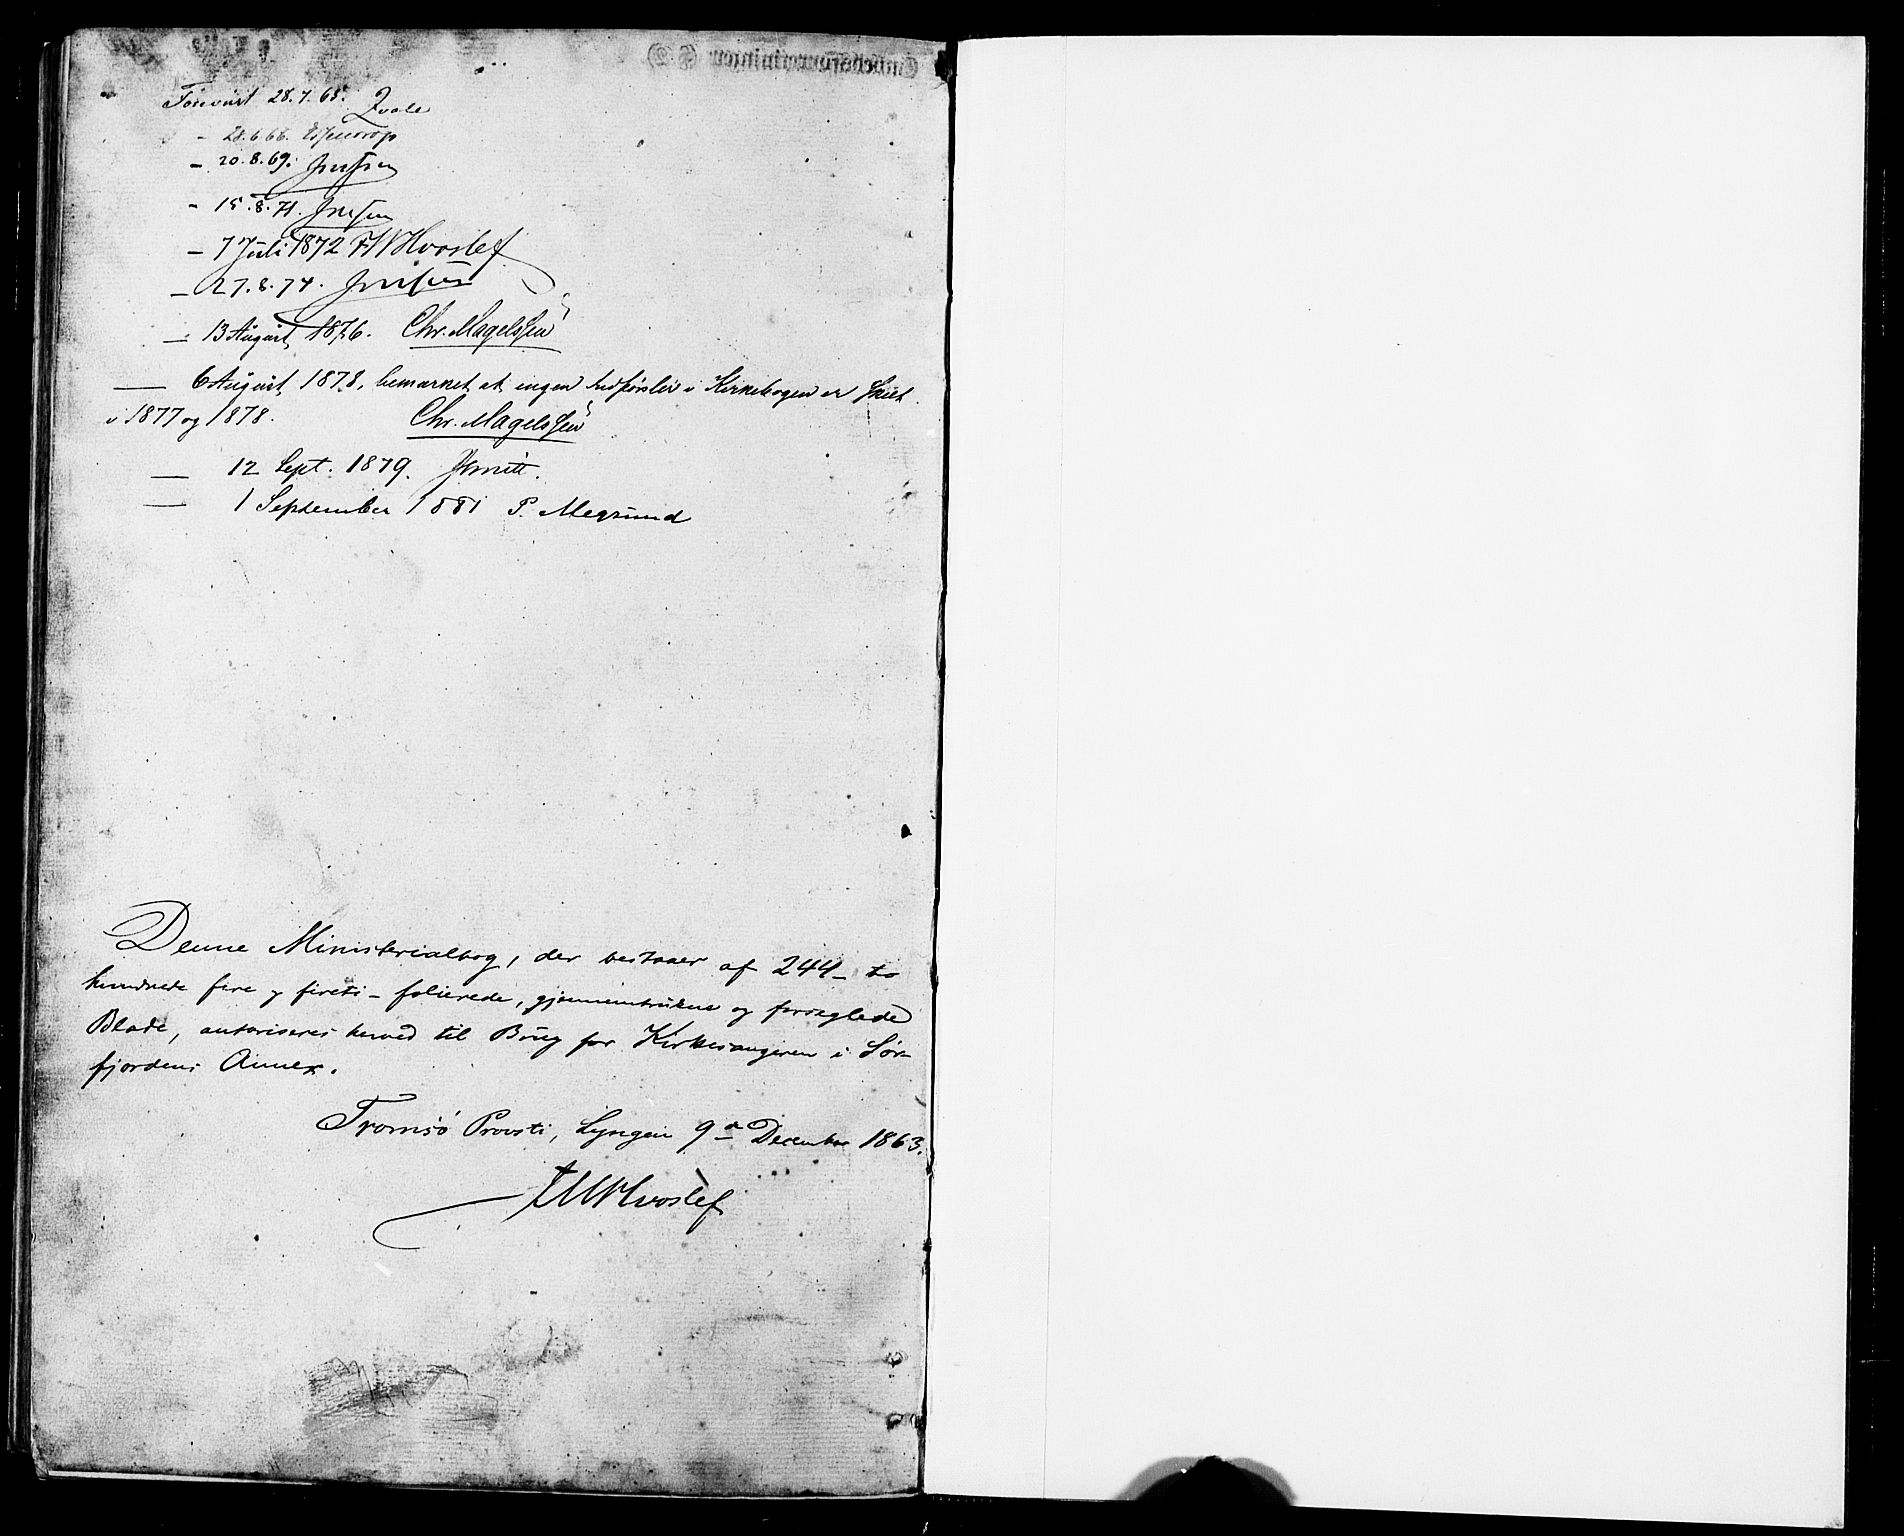 Forevist 28.7.65. Qvale
- 28.6.66. Essendrop
- 20.8.69. Jensen
- 15.8.71. Jensen
- 7 Juli 1872 FWHvoslef
- 27.8.74. Jensen
- 13 August 1876. Chr. Magelssen
- 6 August 1878, bemærket at ingen Indførsler i Kirkebogen er skeet
i 1877 og 1878. Chr. Magelssen
- 12 Sept. 1879. JSmitt.
- 1 September 1881 P.
Denne Ministerialbog, der bestaaer af 244 - to
hundrede fire og fireti - folierede, gjennemtrukne og forseglede
Blade, autoriseres herved til Brug for Kirkesangeren i Sør-
fjordens Annex.
Tromsö Provsti, Lyngen 9de December 1863.
FWHvoslef